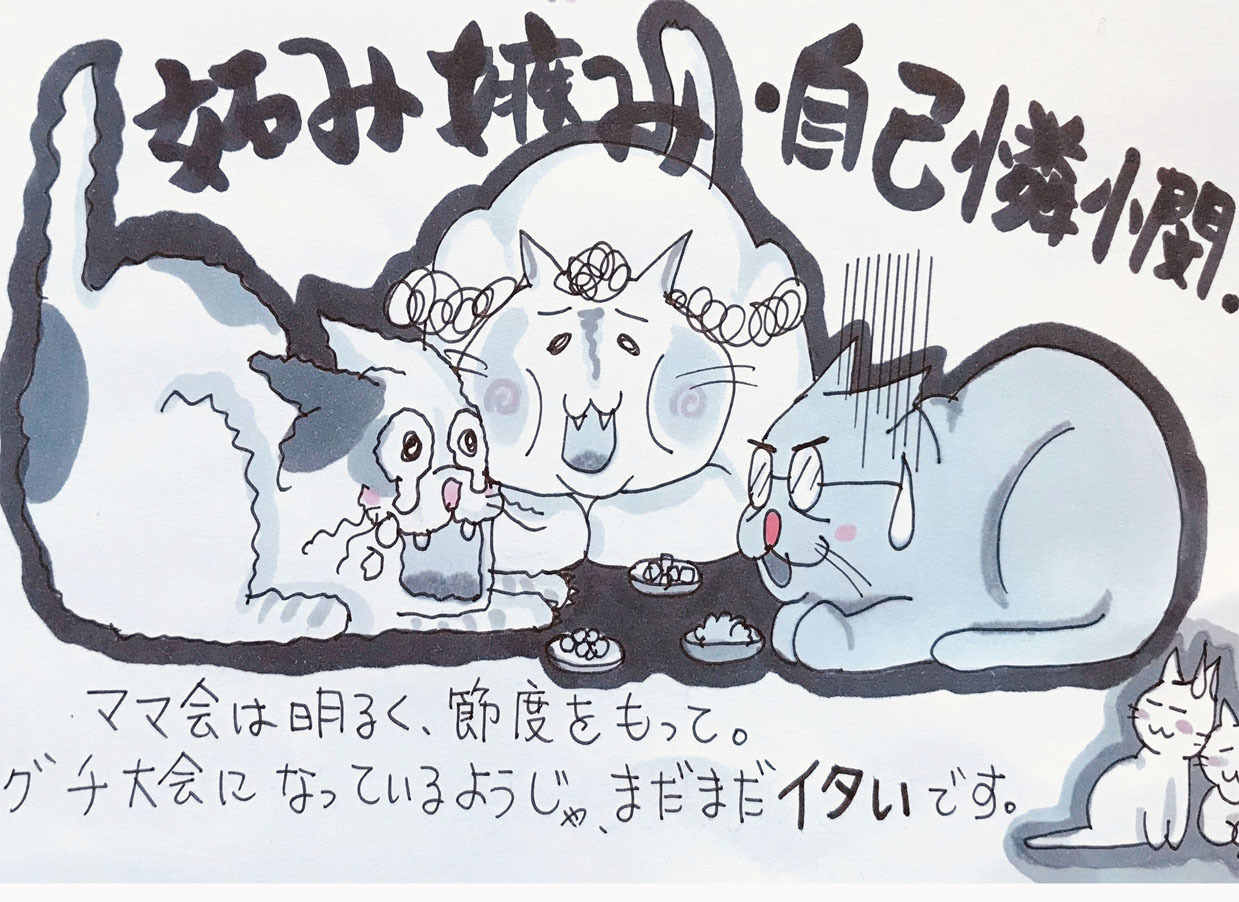 妬み嫉み・自己憐憫.
ママ会は明るく、節度をもって。
グチ大会になっているようじゃ、まだまだイタいです。